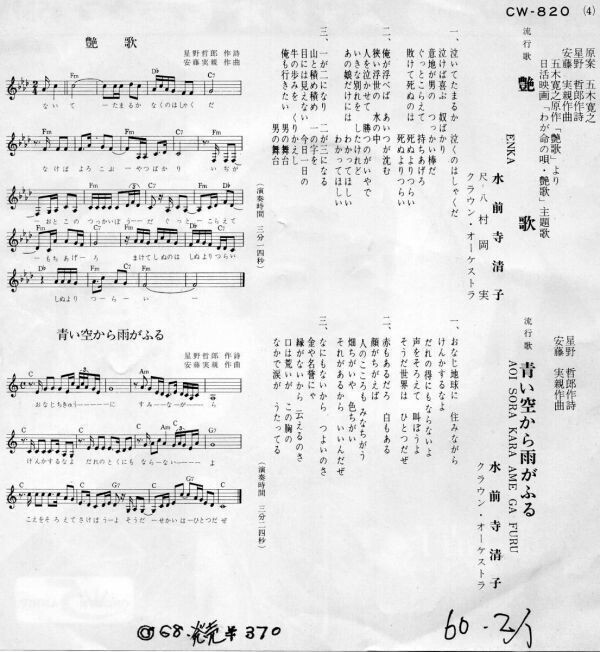 CW-820 (4)
原案 五木寛之
星野 哲郎作詩
安藤 実親作曲
五木寛之原作「艶歌」より
日活映画「わが命の唄・艶歌」主題歌
流行歌 艶歌
ENKA
水前寺清子
尺八 村岡 実
クラウン・オーケストラ
一、泣いてたまるか 泣くのはしゃくだ
泣けば喜ぶ 奴ばかり
意地が男の つっかい棒だ
ぐっとこらえて 持ちあげろ
敗けて死ぬのは 死ぬよりつらい
死ぬよりつらい
二、俺が浮べば あいつが沈む
狭い浮世の 水の中
人を泣かせて 勝つのがいやで
いきな別れを したけれど
あの娘だけには わかってほしい
わかってほしい
三、一が二になり 二が三になる
山と積め積め 一の字を
目には見えない 今日一日の
牛の歩みを くりかえし
俺も行きたい 男の舞台
男の舞台
(演奏時間 三分一四秒)
艶歌
星野哲郎 作詩
安藤実親 作曲
Fm D♭ C7
ないて ーたまるか なくのはしゃく だ
Fm C7
なけば よろこぶ ーやつばかり いぢが
ーおとこ のつっかいぼうーだ ぐっとーこらえて
ーもちあげーろ まけてしぬのは しぬよりつらい
しぬより つらーい ー
星野 哲郎作詩
安藤 実親作曲
流行歌 青い空から雨がふる
AOI SORA KARA AME GA FURU
水前寺清子
クラウン・オーケストラ
一、おなじ地球に 住みながら
けんかするなよ
だれの得にもならないよ
声をそろえて 叫ぼうよ
そうだ世界は ひとつだぜ
二、赤もあるだろ 白もある
顔がちがえば
人のこころも みなちがう
畑ちがいや 色ちがい
それがあるから いいんだぜ
三、なにもないから つよいのさ
金や名誉にゃ
縁がないから 云えるのさ
口は荒いが この胸の
なかで涙が うたってる
(演奏時間 三分二四秒)
青い空から雨がふる
星野哲郎 作詩
安藤実親 作曲
おなじちきゅうーーーーに すみーーなーがーーら
けんかするなよ だれのとくにも ならーないーーーー よ
こえをそろ えてさけぼう ーよ そうだ ーせかいはーひとつだぜ
68.発売 ¥370